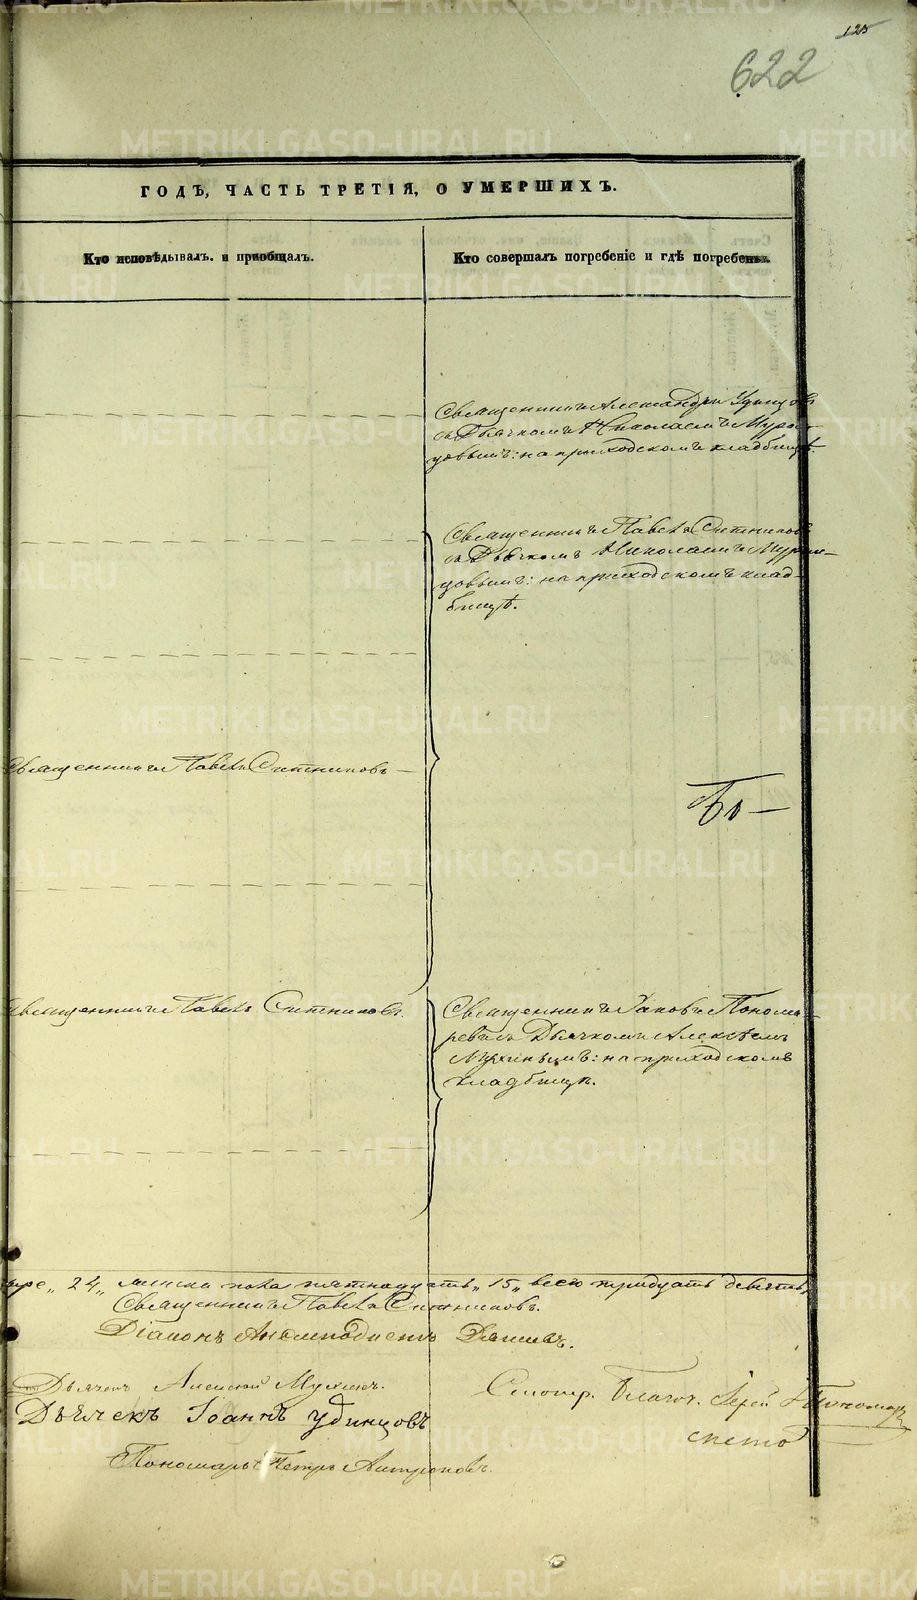 125
622
ГОДЪ, ЧАСТЬ ТРЕТІЯ, О УМЕРШИХЪ.
Кто исповѣдывалъ и пріобщалъ.
Кто совершалъ погребеніе и гдѣ погребены.
Священникъ Александръ Удинцовъ
съ Дьячкомъ Николаемъ
: на приходскомъ кладбищѣ.
Священникъ Павелъ Ситниковъ
съ Дьячкомъ Николаемъ
цовымъ: на приходскомъ клад-
бищѣ.
Священникъ Павелъ Ситниковъ —
Священникъ Павелъ Ситниковъ.
Священникъ Іаковъ Понома-
ревъ съ Дьячкомъ Алексѣемъ
Мухинымъ: на приходскомъ
кладбищѣ.
„24„ женска пола пятнадцать „15„ всего тридцать девять
Священникъ Павелъ Ситниковъ.
Діаконъ Анемподистъ
Дьячекъ Алексѣй Мухинъ.
Смотр. Благоч. Іерей Пономар
Дьячекъ Іоаннъ Удинцовъ
Пономарь Петръ
METRIKI.GASO-URAL.RU